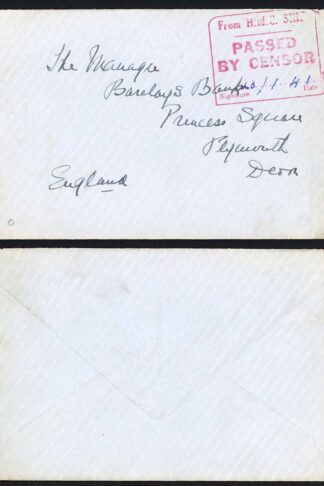 From H.M.C. SHIP
PASSED
BY CENSOR
/1.41.
Signature Date
The Manager
Barclays Bank
Princess Square
Plymouth
Devon
England